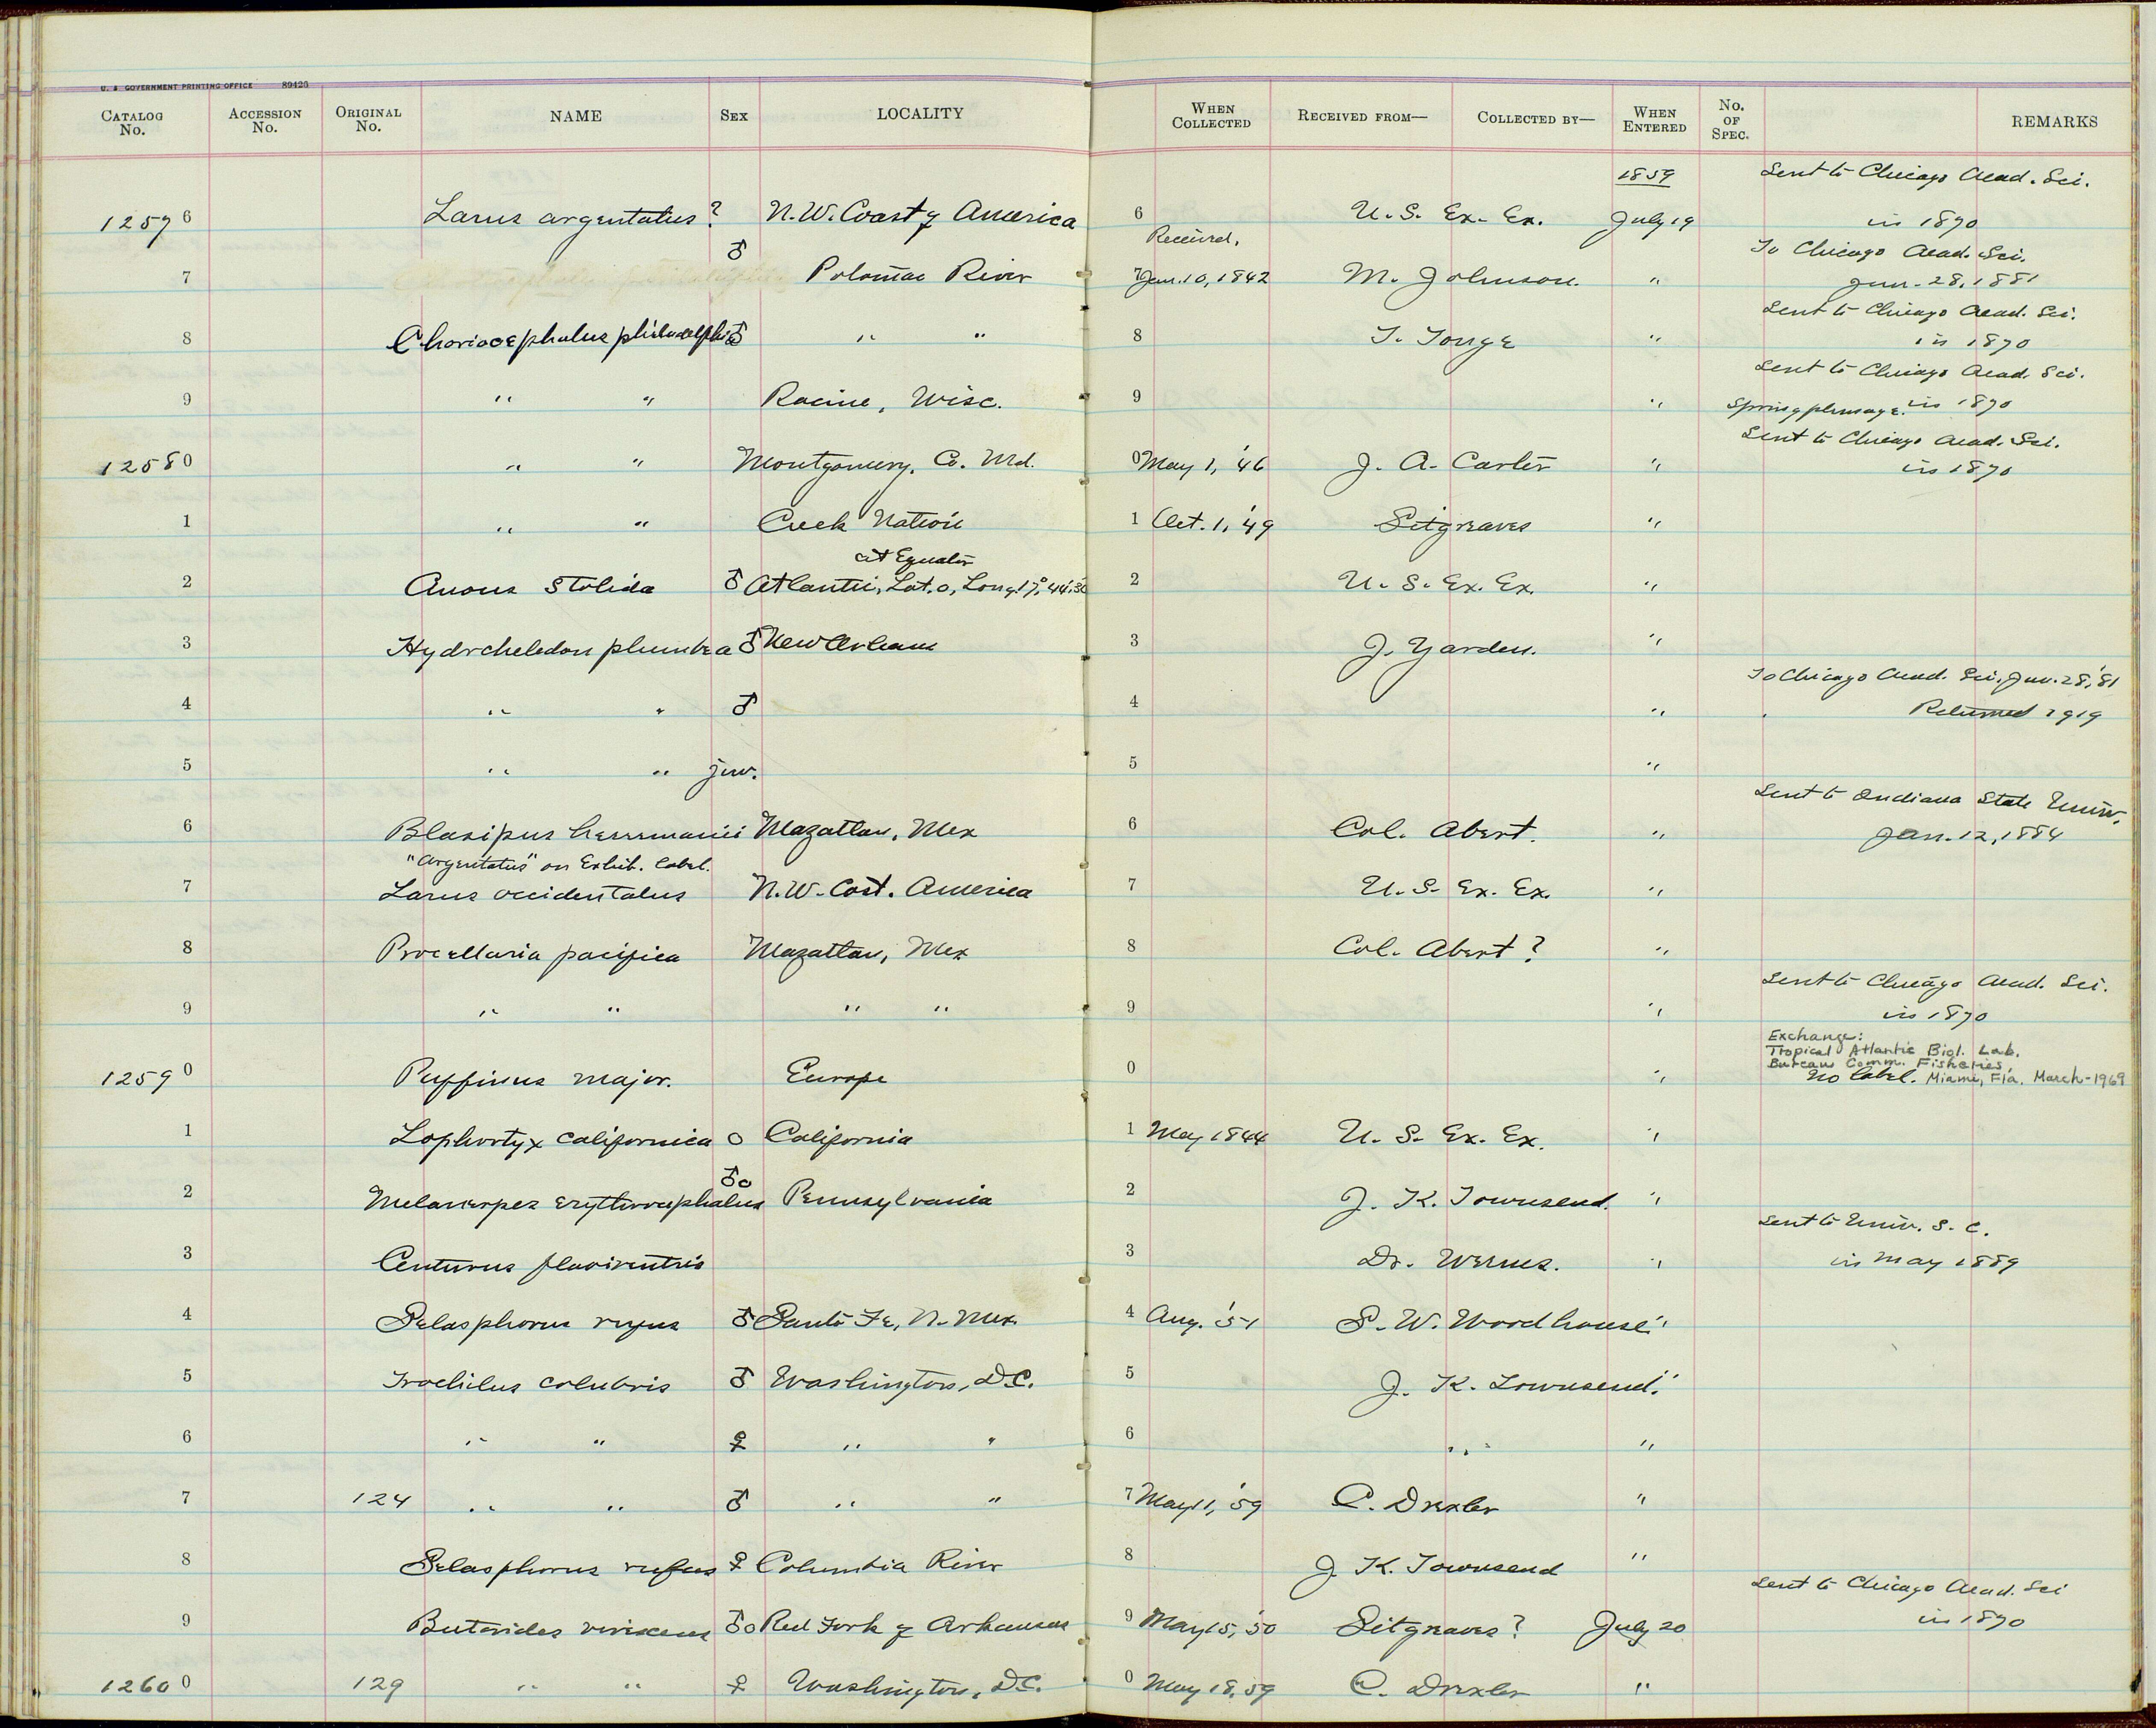 U. S. GOVERNMENT PRINTING OFFICE 89426
CATALOG No. ACCESSION No. ORIGINAL No. NAME SEX LOCALITY WHEN COLLECTED RECEIVED FROM— COLLECTED BY— WHEN ENTERED No. OF SPEC. REMARKS
1859 Sent to Chicago Acad. Sci.
12576 Larus argentatus? N.W. Coast of America 6 U. S. Ex. Ex. July 19 in 1870
♂ Received. To Chicago Acad. Sci.
7 Potomac River 7 Jan. 10, 1842 M. Johnson. " Jan. 28, 1881
Sent to Chicago Acad. Sci.
8 Choriocephalus philadelphia ♂ " " 8 T. Tonge " in 1870
Sent to Chicago Acad. Sci.
9 " " Racine, Wisc. 9 " Spring plumage. in 1870
Sent to Chicago Acad. Sci.
12580 " " Montgomery, Co. Md. 0 May 1, '46 J. A. Carter " in 1870
1 " " Creek Nation 1 Oct. 1, '49 Sitgreaves "
at Equator
2 Anous stolida ♂ Atlantic, Lat. 0, Long. 17° 44' 2 U. S. Ex. Ex. "
3 Hydrcheledon plumbea ♂ New Orleans 3 J. Yarden. "
To Chicago Acad. Sci. Jan. 28, '81
4 " " ♂ 4 " Returned 1919
5 " " juv. 5 "
Sent to Indiana State Univ.
6 Blasipus heermanii Mazatlan, Mex 6 Col. Abert. " Jan. 12, 1884
"Argentatus" on Exhib. label.
7 Larus occidentalus N.W. Cost. America 7 U. S. Ex. Ex. "
8 Procellaria pacifica Mazatlan, Mex 8 Col. Abert? "
Sent to Chicago Acad. Sci.
9 " " " " 9 " in 1870
Exchange:
Tropical Atlantic Biol. Lab.
Bureau Comm. Fisheries,
12590 Puffinus major. Europe 0 " No label. Miami, Fla. March-1969
1 Lophortyx californica o California 1 May 1844 U. S. Ex. Ex. "
♂o
2 Melanerpes erythrocephalus Pennsylvania 2 J. K. Townsend. "
Sent to Univ. S. C.
3 Centurus flaviventris 3 Dr. Wernes. " in May 1889
4 Selasphorus rufus ♂ Santa Fe, N. Mex. 4 Aug. '51 S. W. Woodhouse "
5 Trochilus colubris ♂ Washington, D.C. 5 J. K. Townsend. "
6 " " ♀ " " 6 " "
7 124 " " ♂ " " 7 May 11, '59 C. Drexler "
8 Selasphorus rufus ♀ Columbia River 8 J. K. Townsend "
Sent to Chicago Acad. Sci
9 Butorides virescens ♂o Red Fork of Arkansas 9 May 15, '50 Sitgreaves? July 20 in 1870
12600 129 " " ♀ Washington, D.C. 0 May 18, 59 C. Drexler "